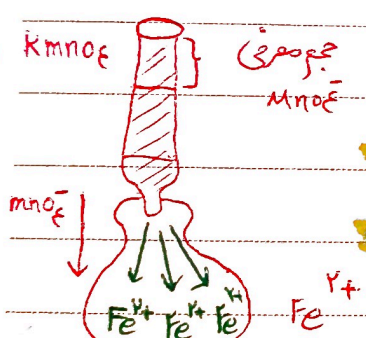 KmnO۴
حجم مصرفی
MnO۴⁻
mnO۴⁻
Fe²⁺ Fe²⁺ Fe²⁺
Fe²⁺